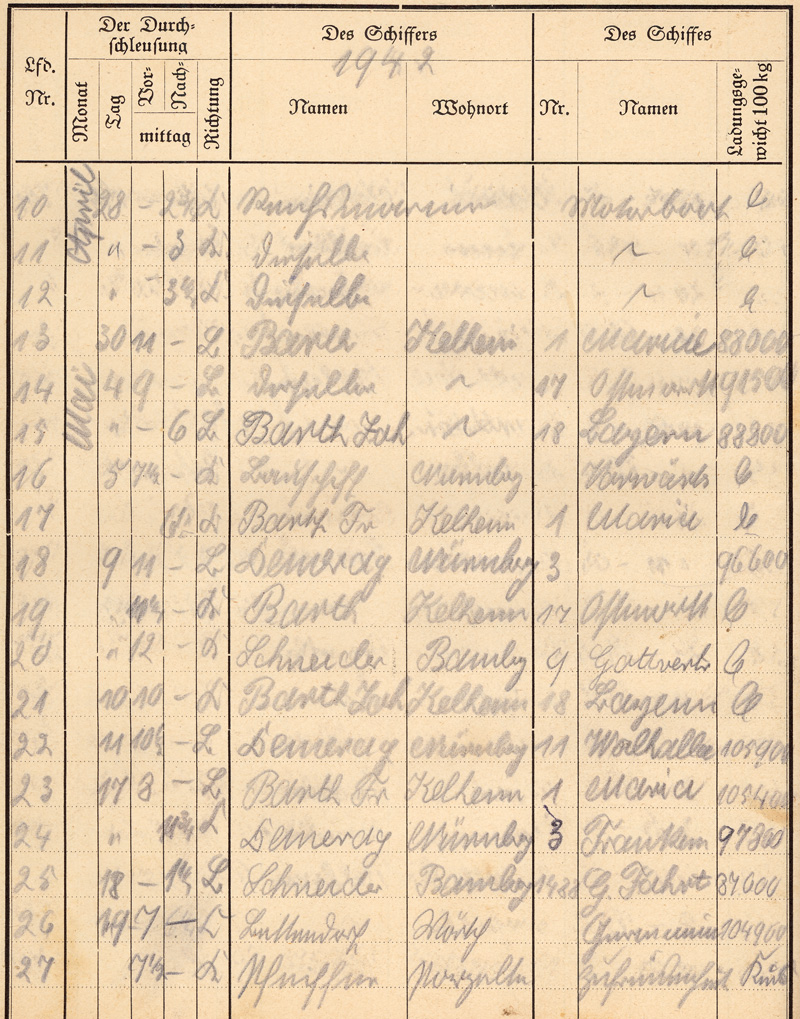 Lfd. Nr. Der Durchschleusung Des Schiffers Des Schiffes
1942
Monat Tag Vor- Nach- mittag Richtung Namen Wohnort Nr. Namen Ladungsgewicht 100 kg
10 April 28 – 2½ Reichsmarine Motorboot
11 „ – 3 derselbe
12 „ – 3½ derselbe
13 30 11 – L Barth Kelheim 1 Maria 88000
14 Mai 4 9 – L derselbe 17 Ostmark 91500
15 „ – 6 L Barth Joh 18 Bayern 88800
16 5 7½ – Nürnbg Vorwärts
17 Barth Fr Kelheim 1 Maria
18 9 11 – L Demerag Nürnberg 3 96600
19 „ – Barth Kelheim 17 Ostmark
20 „ 12 – Schneider Bambg 9 Gottvertr
21 10 10 – Barth Joh Kelheim 18 Bayern
22 11 10½ – L Demerag Nürnberg 11 Walhalla 105900
23 17 8 – L Barth Fr Kelheim 1 Maria 105400
24 „ Demerag Nürnberg 3 Franken 97800
25 18 – L Schneider Bamberg G. Fahrt 87000
26 19 7 – Bettendorf Wörth Germania 104900
27 7½ – Zufriedenheit